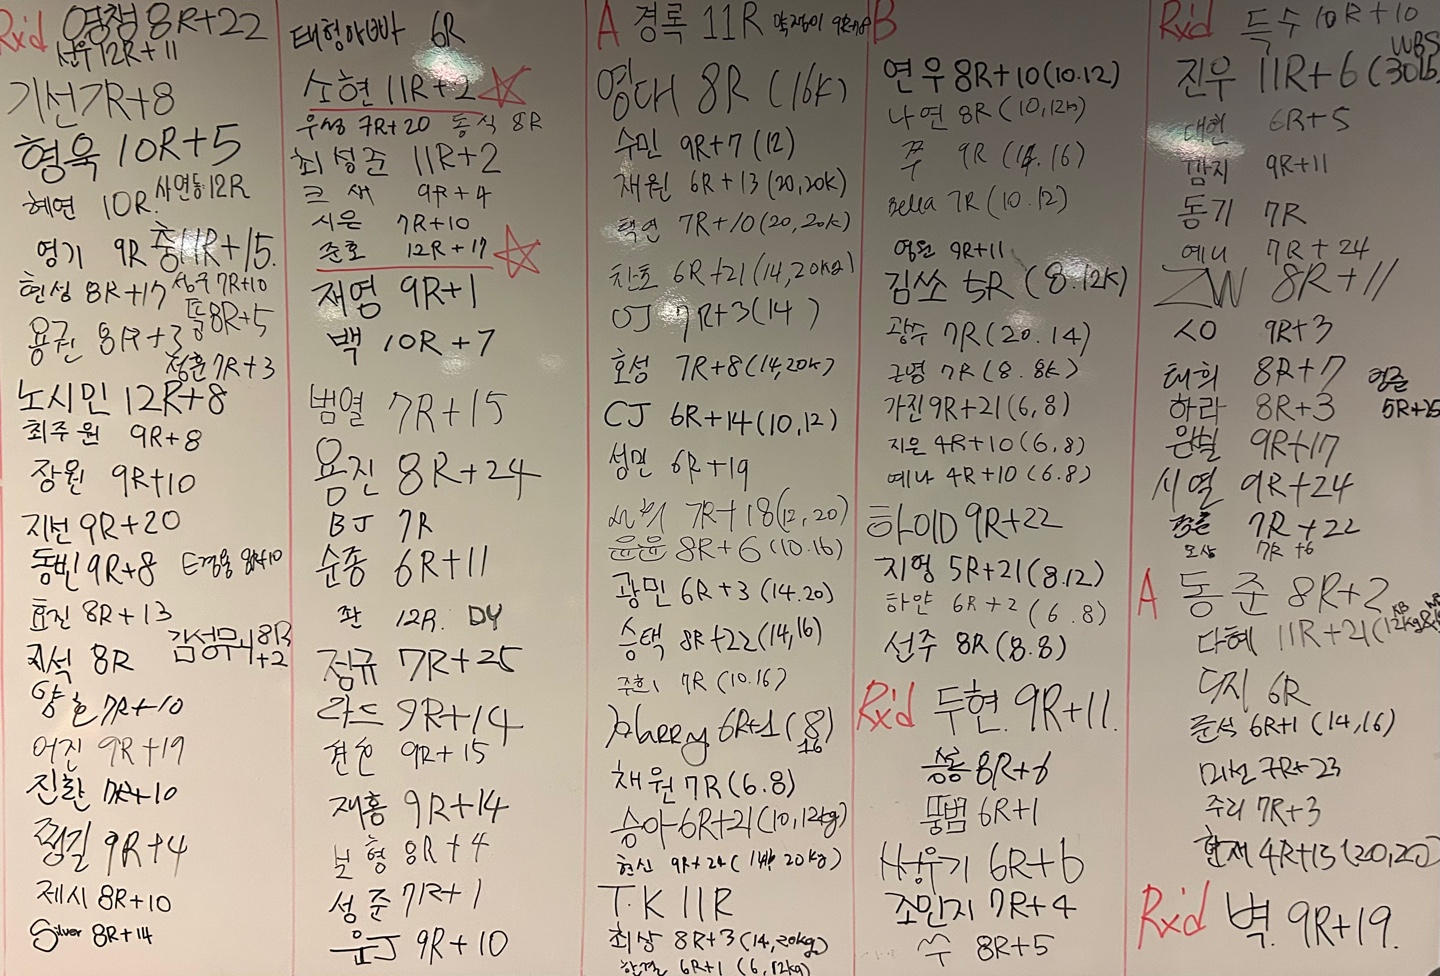 Rx'd 영챔 8R+22
선우 12R+11
기선 7R+8
형욱 10R+5
혜연 10R. 사연동 12R
영기 9R 충 11R+15.
현성 8R+17 성구 7R+10
용권 8R+3 똥 8R+5
정훈 7R+3
노시민 12R+8
최주원 9R+8
장원 9R+10
지선 9R+20
동빈 9R+8 E경용 8R+10
효진 8R+13
지석 8R 김성무 8R+2
양호 7R+10
어진 9R+19
진환 7R+10
찡길 9R+4
제시 8R+10
Silver 8R+14
태형아빠 6R
소현 11R+2
우성 7R+20 동석 8R
최성준 11R+2
크새 9R+4
시은 7R+10
준호 12R+17
재영 9R+1
백 10R+7
범열 7R+15
용진 8R+24
BJ 7R
순종 6R+11
좐 12R. DY
정규 7R+25
라드 9R+14
9R+15
재홍 9R+14
보형 8R+4
성준 7R+1
운J 9R+10
A 경록 11R
영대 8R (16K)
수민 9R+7 (12)
재원 6R+13 (20,20K)
택연 7R+10 (20,20K)
찬호 6R+21 (14,20kg)
OJ 7R+3 (14)
호성 7R+8 (14,20K)
CJ 6R+14 (10,12)
성민 6R+19
7R+18 (12,20)
윤윤 8R+6 (10.16)
광민 6R+3 (14.20)
승택 8R+22 (14,16)
주희 7R (10.16)
Harry 6R+1 (8)
16
채원 7R (6.8)
승아 6R+21 (10,12kg)
현신 9R+24 (14, 20kg)
T.K 11R
최상 8R+3 (14,20kg)
한결 6R+1 (6,12kg)
B
연우 8R+10 (10.12)
나연 8R (10,12k)
쭈 9R (14.16)
Bella 7R (10.12)
영원 9R+11
김쏘 5R (8.12K)
광수 7R (20.14)
근영 7R (8.8k)
가진 9R+21 (6,8)
지은 4R+10 (6,8)
예나 4R+10 (6.8)
하이D 9R+22
지영 5R+21 (8.12)
하얀 6R+2 (6.8)
선주 8R (8.8)
Rx'd 두현. 9R+11.
승룡 8R+6
뚱범 6R+1
유기 6R+6
조민지 7R+4
쑤 8R+5
Rx'd 득수 10R+10
진우 11R+6 (30lb WBS
대한 6R+5
깜지 9R+11
동기 7R
예니 7R+24
ZW 8R+11
SO 9R+3
태희 8R+7 영준
하라 8R+3 5R+25
원빈 9R+17
시열 9R+24
정훈 7R+22
도상 7R+6
A 동준 8R+2
다혜 11R+21 (12kg
두지 6R
준석 6R+1 (14,16)
미선 7R+23
주리 7R+3
현재 4R+13 (20,20)
Rx'd 벽. 9R+19.